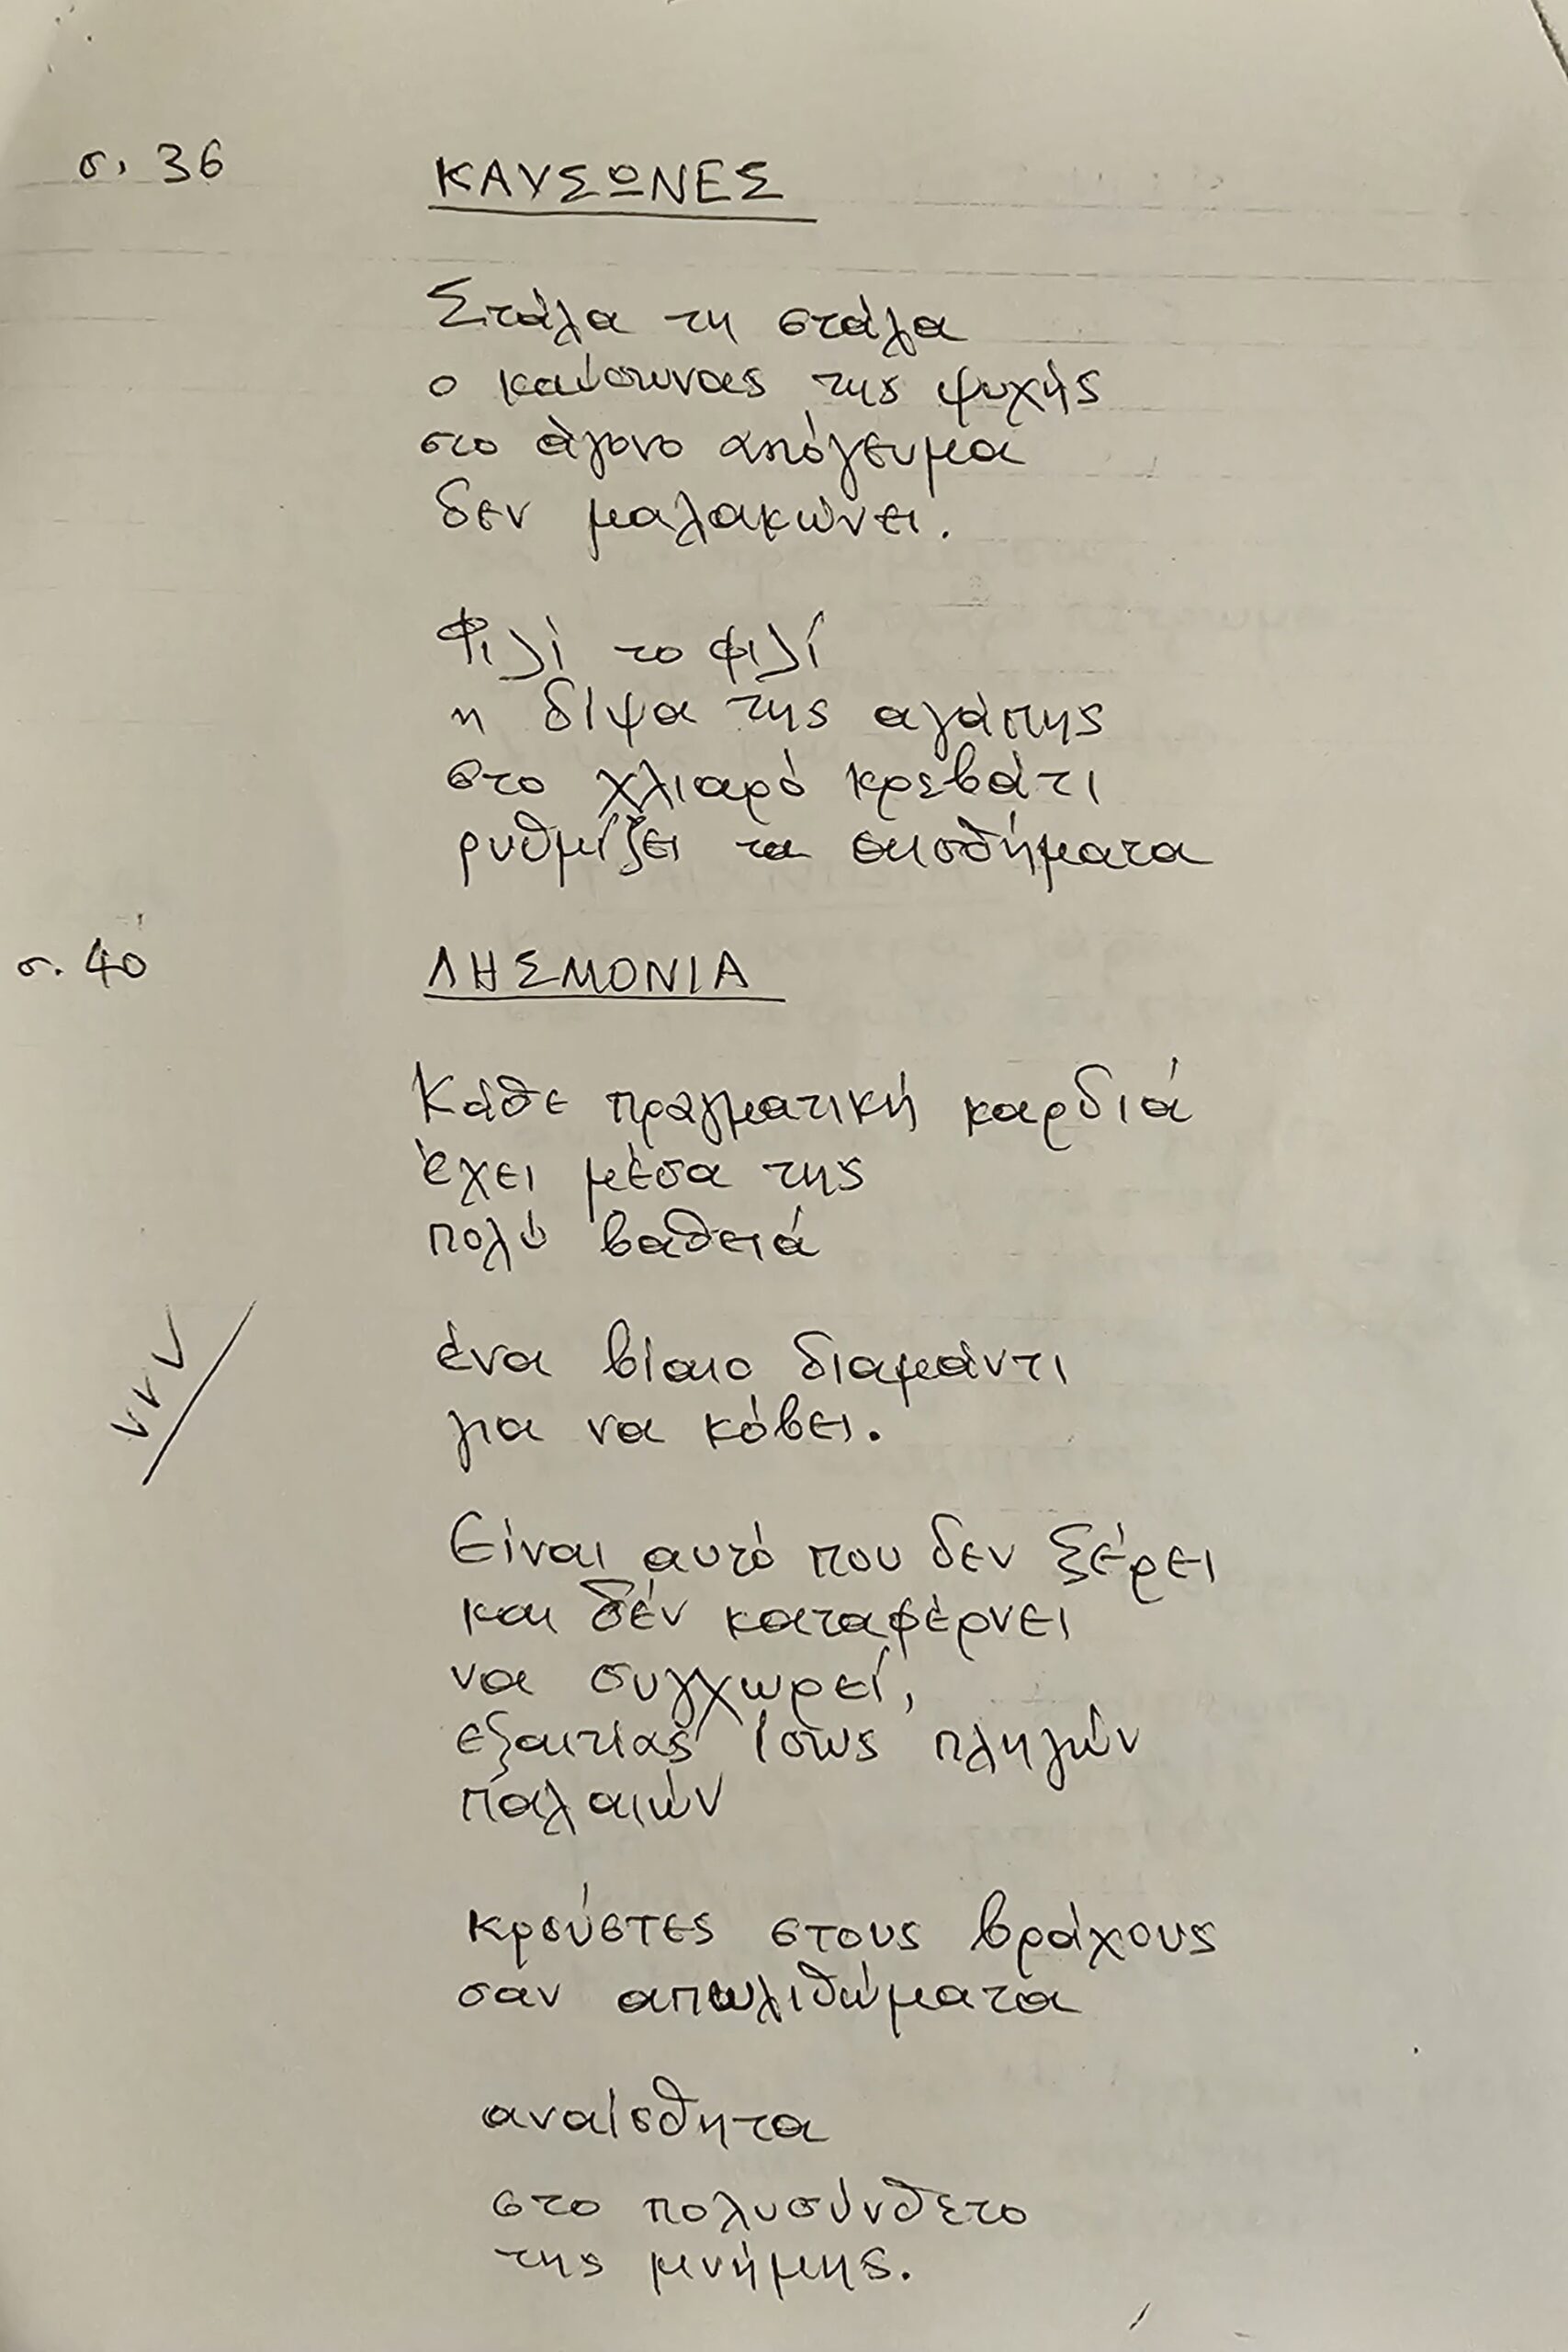 σ. 36 ΚΑΥΣΩΝΕΣ
Στάλα τη στάλα
ο καύσωνας της ψυχής
στο άγονο απόγευμα
δεν μαλακώνει.
Φιλί το φιλί
η δίψα της αγάπης
στο χλιαρό κρεβάτι
ρυθμίζει τα αισθήματα
σ. 40 ΛΗΣΜΟΝΙΑ
Κάθε πραγματική καρδιά
έχει μέσα της
πολύ βαθειά
ένα βίαιο διαμάντι
για να κόβει.
Είναι αυτό που δεν ξέρει
και δέν καταφέρνει
να συγχωρεί,
εξαιτίας ίσως πληγών
παλαιών
κρούστες στους βράχους
σαν απωλιθώματα
αναίσθητα
στο πολυσύνθετο
της μνήμης.